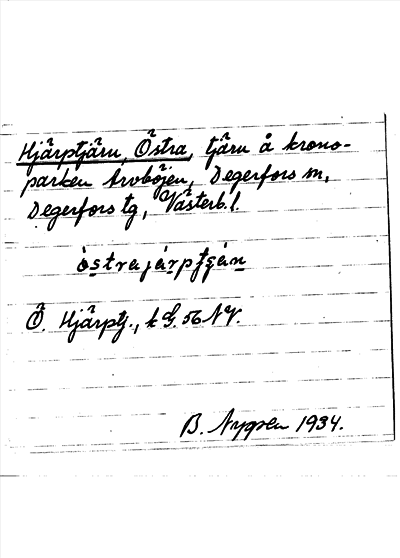 Hjärptjärn, Östra, tjärn å krono-
parken Arvböjen, Degerfors sn,
Degerfors tg, Västerb. l.
östrajärptʃän
Ö. Hjärptj., k G. 56 NV.
B. Nygren 1934.